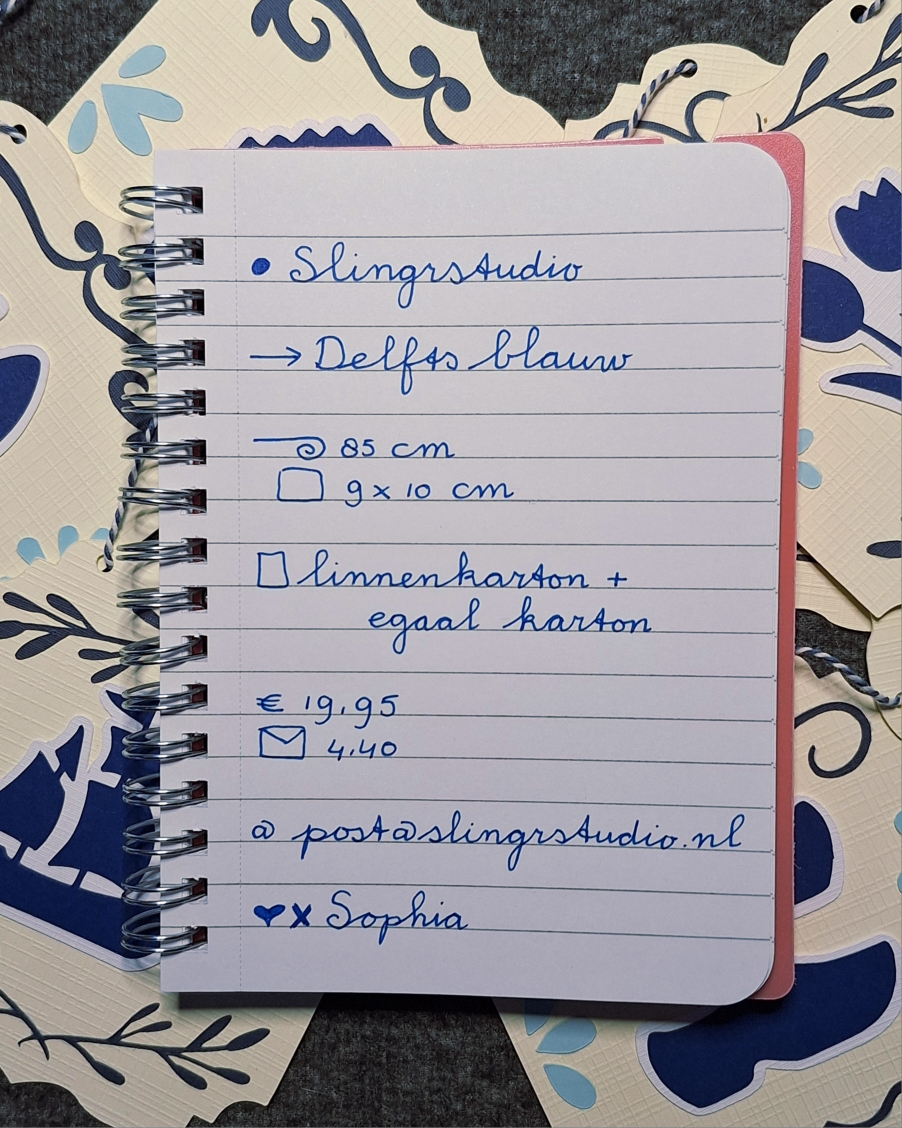 • Slingrstudio
→ Delfts blauw
85 cm
9 x 10 cm
linnenkarton +
egaal karton
€ 19,95
4,40
@ post@slingrstudio.nl
♥x Sophia